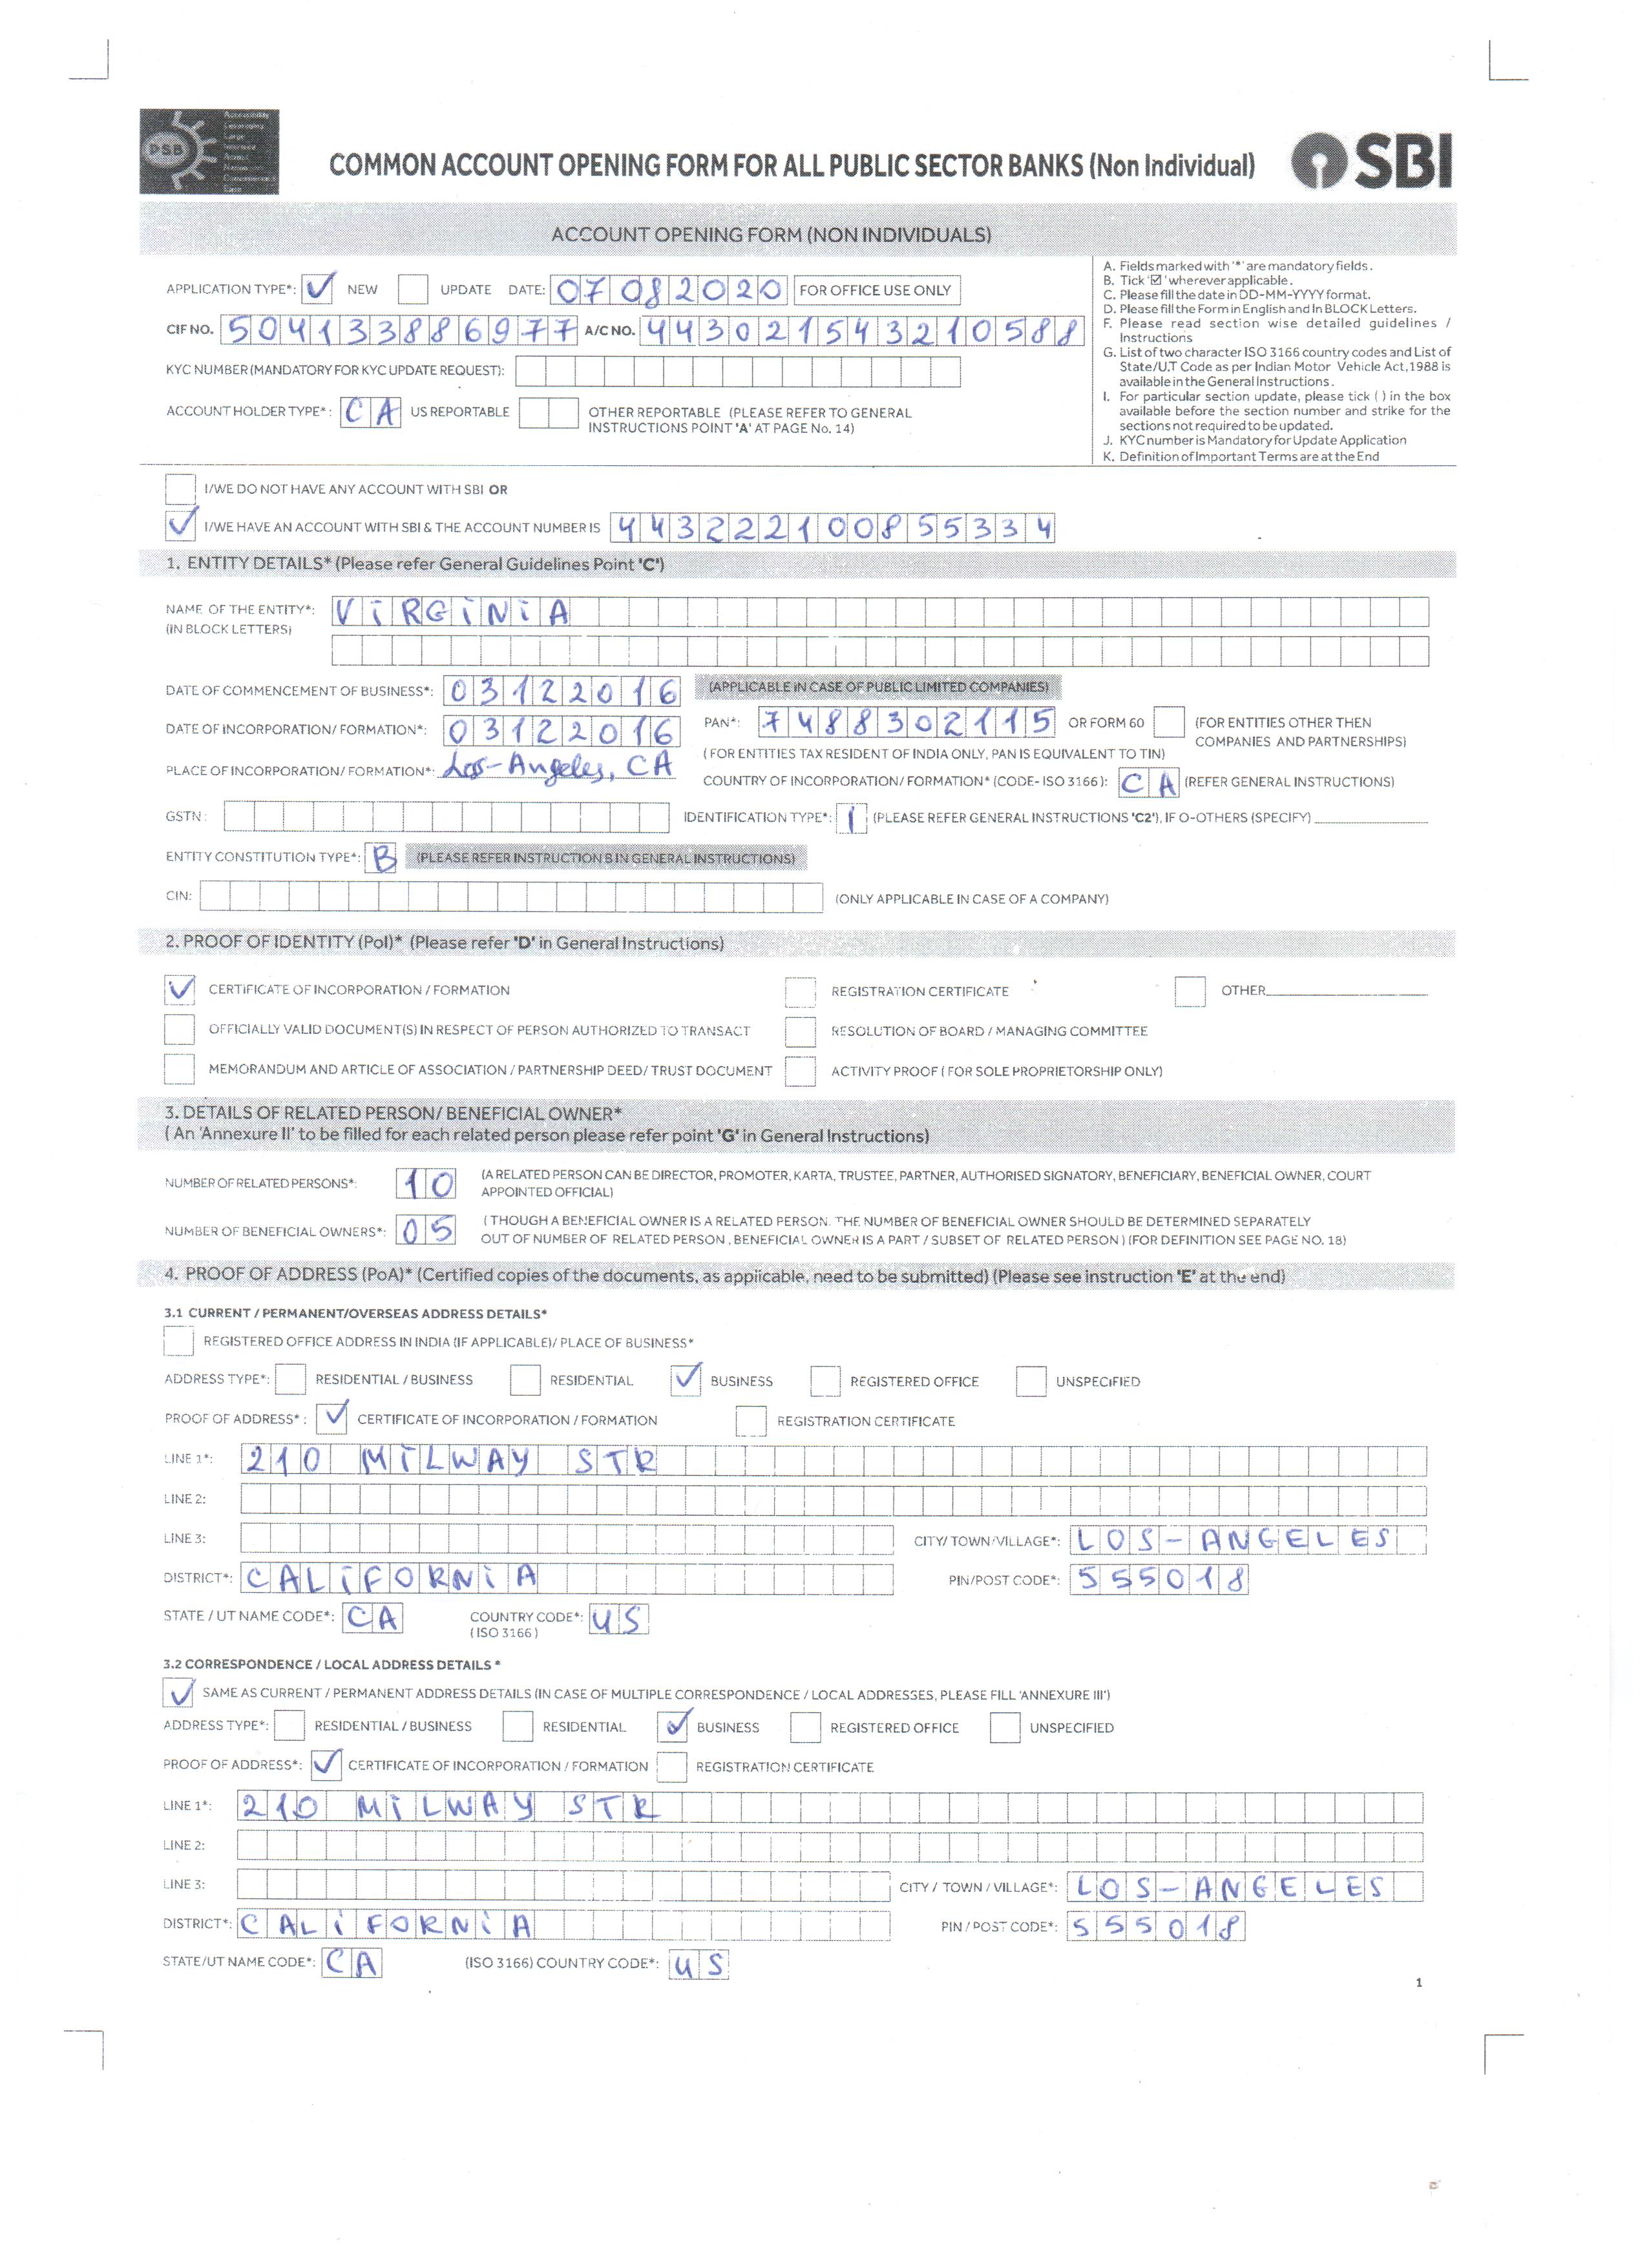 PSB
COMMON ACCOUNT OPENING FORM FOR ALL PUBLIC SECTOR BANKS (Non Individual)
SBI
ACCOUNT OPENING FORM (NON INDIVIDUALS)
APPLICATION TYPE*: ✓ NEW UPDATE DATE: 07082020 FOR OFFICE USE ONLY
CIF NO. 504133886977 A/C NO. 443021543210588
KYC NUMBER (MANDATORY FOR KYC UPDATE REQUEST):
ACCOUNT HOLDER TYPE*: CA US REPORTABLE OTHER REPORTABLE (PLEASE REFER TO GENERAL
INSTRUCTIONS POINT 'A' AT PAGE No. 14)
A. Fields marked with '*' are mandatory fields.
B. Tick '☑' wherever applicable.
C. Please fill the date in DD-MM-YYYY format.
D. Please fill the Form in English and In BLOCK Letters.
F. Please read section wise detailed guidelines /
Instructions
G. List of two character ISO 3166 country codes and List of
State/U.T Code as per Indian Motor Vehicle Act,1988 is
available in the General Instructions.
I. For particular section update, please tick ( ) in the box
available before the section number and strike for the
sections not required to be updated.
J. KYC number is Mandatory for Update Application
K. Definition of Important Terms are at the End
I/WE DO NOT HAVE ANY ACCOUNT WITH SBI OR
✓ I/WE HAVE AN ACCOUNT WITH SBI & THE ACCOUNT NUMBER IS 443222100855334
1. ENTITY DETAILS* (Please refer General Guidelines Point 'C')
NAME OF THE ENTITY*: ViRGiNiA
(IN BLOCK LETTERS)
DATE OF COMMENCEMENT OF BUSINESS*: 03122016 (APPLICABLE IN CASE OF PUBLIC LIMITED COMPANIES)
DATE OF INCORPORATION/ FORMATION*: 03122016 PAN*: 7488302115 OR FORM 60 (FOR ENTITIES OTHER THEN
COMPANIES AND PARTNERSHIPS)
(FOR ENTITIES TAX RESIDENT OF INDIA ONLY, PAN IS EQUIVALENT TO TIN)
PLACE OF INCORPORATION/ FORMATION*: Los-Angeles, CA COUNTRY OF INCORPORATION/ FORMATION* (CODE- ISO 3166): CA (REFER GENERAL INSTRUCTIONS)
GSTN: IDENTIFICATION TYPE*: 1 (PLEASE REFER GENERAL INSTRUCTIONS 'C2'), IF O-OTHERS (SPECIFY)
ENTITY CONSTITUTION TYPE*: B (PLEASE REFER INSTRUCTION B IN GENERAL INSTRUCTIONS)
CIN: (ONLY APPLICABLE IN CASE OF A COMPANY)
2. PROOF OF IDENTITY (PoI)* (Please refer 'D' in General Instructions)
✓ CERTIFICATE OF INCORPORATION / FORMATION REGISTRATION CERTIFICATE OTHER
OFFICIALLY VALID DOCUMENT(S) IN RESPECT OF PERSON AUTHORIZED TO TRANSACT RESOLUTION OF BOARD / MANAGING COMMITTEE
MEMORANDUM AND ARTICLE OF ASSOCIATION / PARTNERSHIP DEED/ TRUST DOCUMENT ACTIVITY PROOF ( FOR SOLE PROPRIETORSHIP ONLY)
3. DETAILS OF RELATED PERSON/ BENEFICIAL OWNER*
( An 'Annexure II' to be filled for each related person please refer point 'G' in General Instructions)
NUMBER OF RELATED PERSONS*: 10 (A RELATED PERSON CAN BE DIRECTOR, PROMOTER, KARTA, TRUSTEE, PARTNER, AUTHORISED SIGNATORY, BENEFICIARY, BENEFICIAL OWNER, COURT
APPOINTED OFFICIAL)
NUMBER OF BENEFICIAL OWNERS*: 05 ( THOUGH A BENEFICIAL OWNER IS A RELATED PERSON. THE NUMBER OF BENEFICIAL OWNER SHOULD BE DETERMINED SEPARATELY
OUT OF NUMBER OF RELATED PERSON , BENEFICIAL OWNER IS A PART / SUBSET OF RELATED PERSON ) (FOR DEFINITION SEE PAGE NO. 18)
4. PROOF OF ADDRESS (PoA)* (Certified copies of the documents, as applicable, need to be submitted) (Please see instruction 'E' at the end)
3.1 CURRENT / PERMANENT/OVERSEAS ADDRESS DETAILS*
REGISTERED OFFICE ADDRESS IN INDIA (IF APPLICABLE)/ PLACE OF BUSINESS*
ADDRESS TYPE*: RESIDENTIAL / BUSINESS RESIDENTIAL ✓ BUSINESS REGISTERED OFFICE UNSPECIFIED
PROOF OF ADDRESS*: ✓ CERTIFICATE OF INCORPORATION / FORMATION REGISTRATION CERTIFICATE
LINE 1*: 210 MiLWAY STR
LINE 2:
LINE 3: CITY/ TOWN/VILLAGE*: LOS-ANGELES
DISTRICT*: CALiFORNiA PIN/POST CODE*: 555018
STATE / UT NAME CODE*: CA COUNTRY CODE*: US
( ISO 3166 )
3.2 CORRESPONDENCE / LOCAL ADDRESS DETAILS *
✓ SAME AS CURRENT / PERMANENT ADDRESS DETAILS (IN CASE OF MULTIPLE CORRESPONDENCE / LOCAL ADDRESSES, PLEASE FILL 'ANNEXURE III')
ADDRESS TYPE*: RESIDENTIAL / BUSINESS RESIDENTIAL ✓ BUSINESS REGISTERED OFFICE UNSPECIFIED
PROOF OF ADDRESS*: ✓ CERTIFICATE OF INCORPORATION / FORMATION REGISTRATION CERTIFICATE
LINE 1*: 210 MiLWAY STR
LINE 2:
LINE 3: CITY / TOWN / VILLAGE*: LOS-ANGELES
DISTRICT*: CALiFORNiA PIN / POST CODE*: 555018
STATE/UT NAME CODE*: CA (ISO 3166) COUNTRY CODE*: US
1